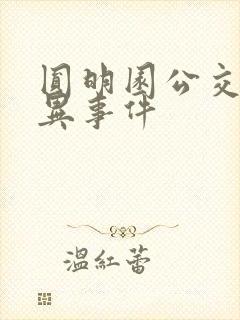 圆明园公交
异事件
温红蕾